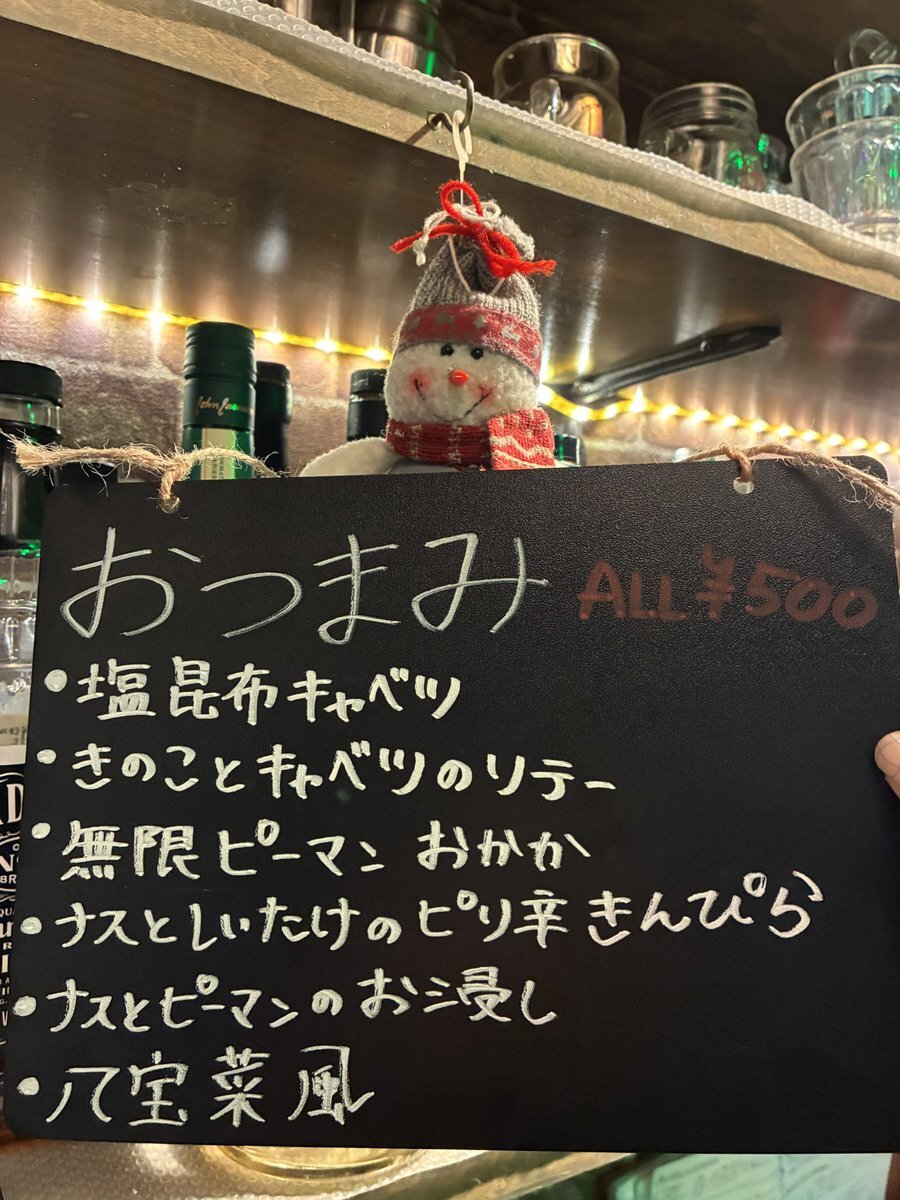 John Jameson
おつまみ ALL ¥500
・塩昆布キャベツ
・きのことキャベツのソテー
・無限ピーマン おかか
・ナスとしいたけのピリ辛きんぴら
・ナスとピーマンのお浸し
・八宝菜風